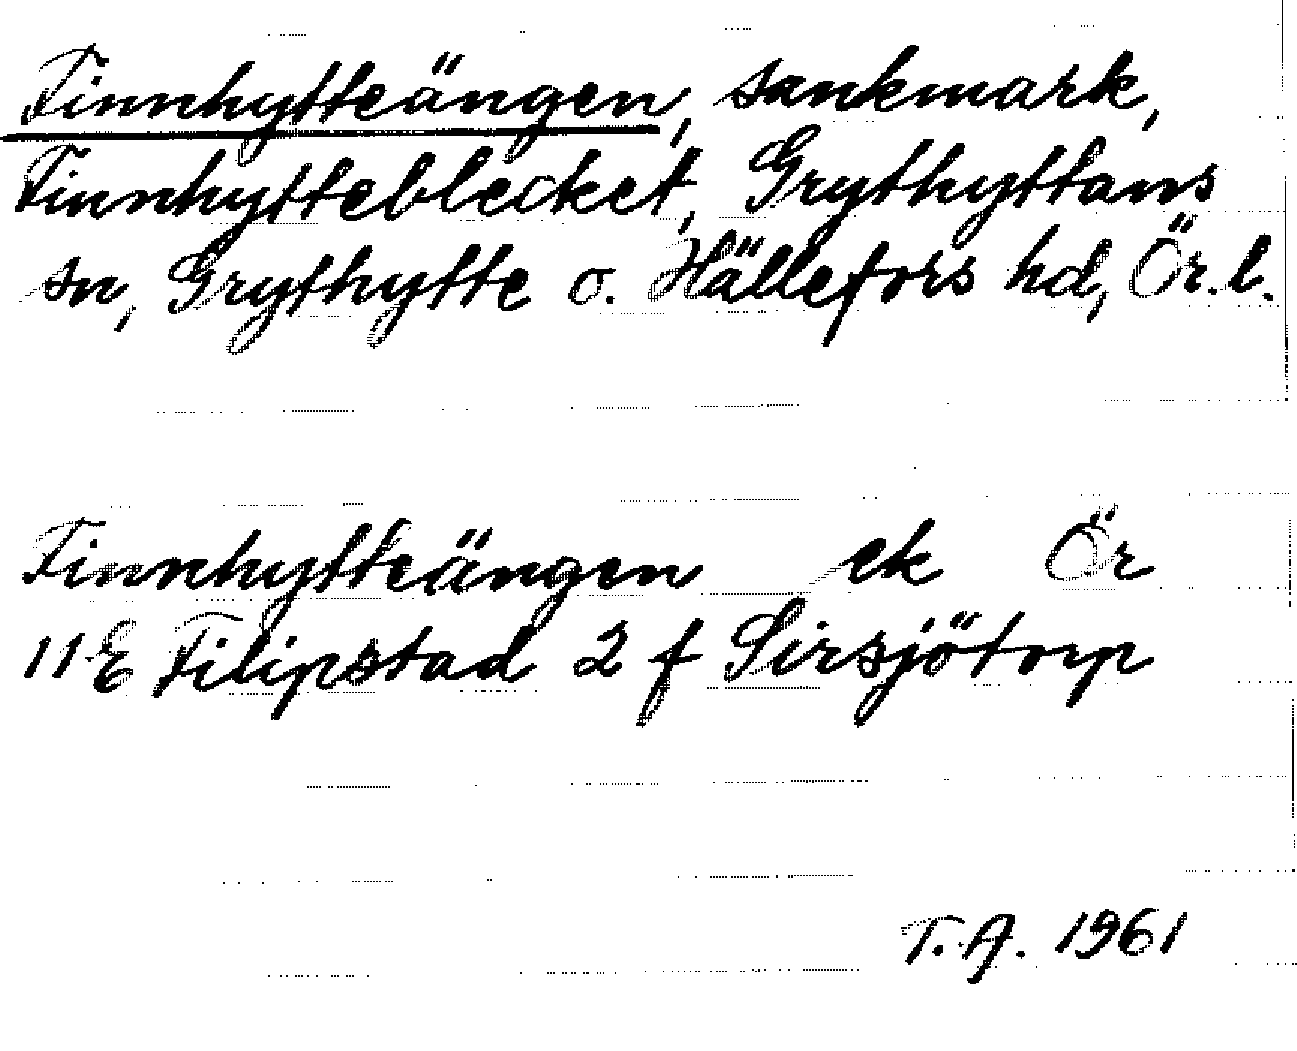 Finnhytteängen, sankmark,
Finnhytteblecket, Grythyttans
sn, Grythytte o. Hällefors hd, Ör. l.
Finnhytteängen ek Ör
11 E Filipstad 2 f Sirsjötorp
T. A. 1961